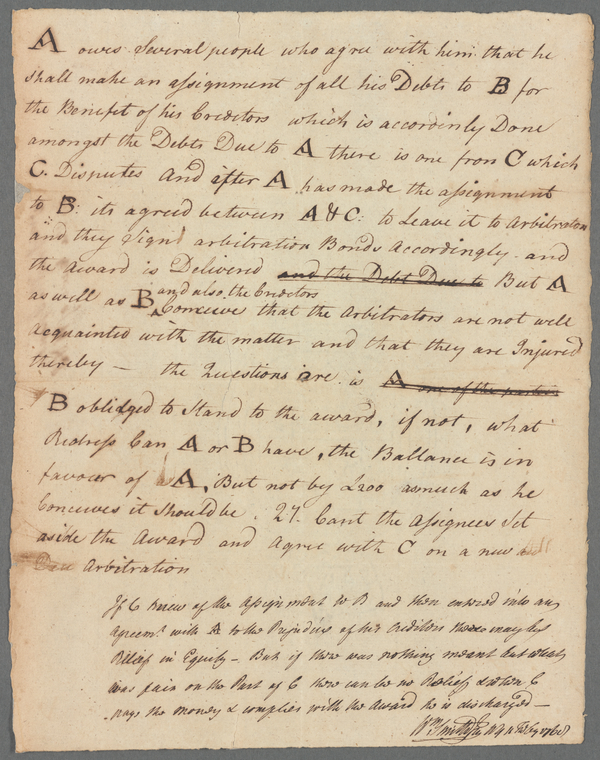 A owes Several people who agree with him that he
shall make an assignment of all his Debts to B for
the Benefit of his Creditors which is accordinly Done
amongst the Debts Due to A there is one from C which
C. Disputes and after A has made the assignment
to B: its agreed between A & C: to Leave it to Arbitrators
and they Signd arbitration Bonds Accordingly. and
the Award is Delivered and the Debt Due to But A
as well as B and also the Creditors Conceive that the Arbitrators are not well
acquainted with the matter and that they are Injured
thereby — the Questions are is A one of the parties
B oblidged to Stand to the award, if not, what
Redress Can A or B have, the Ballance is in
favour of A, But not by £200 asmuch as he
Conceives it should be. 2?. Cant the Assignees Set
aside the Award and Agree with C on a new
Arbitration
If C knew of the Assignment to B and then entered into any
Agreemt. with A to the Prejudice of his Creditors there may be
Relief in Equity — But if there was nothing meant but what
was fair on the Part of C there can be no Relief & when C
pays the Money & complies with the Award he is discharged —
Wm. Smith